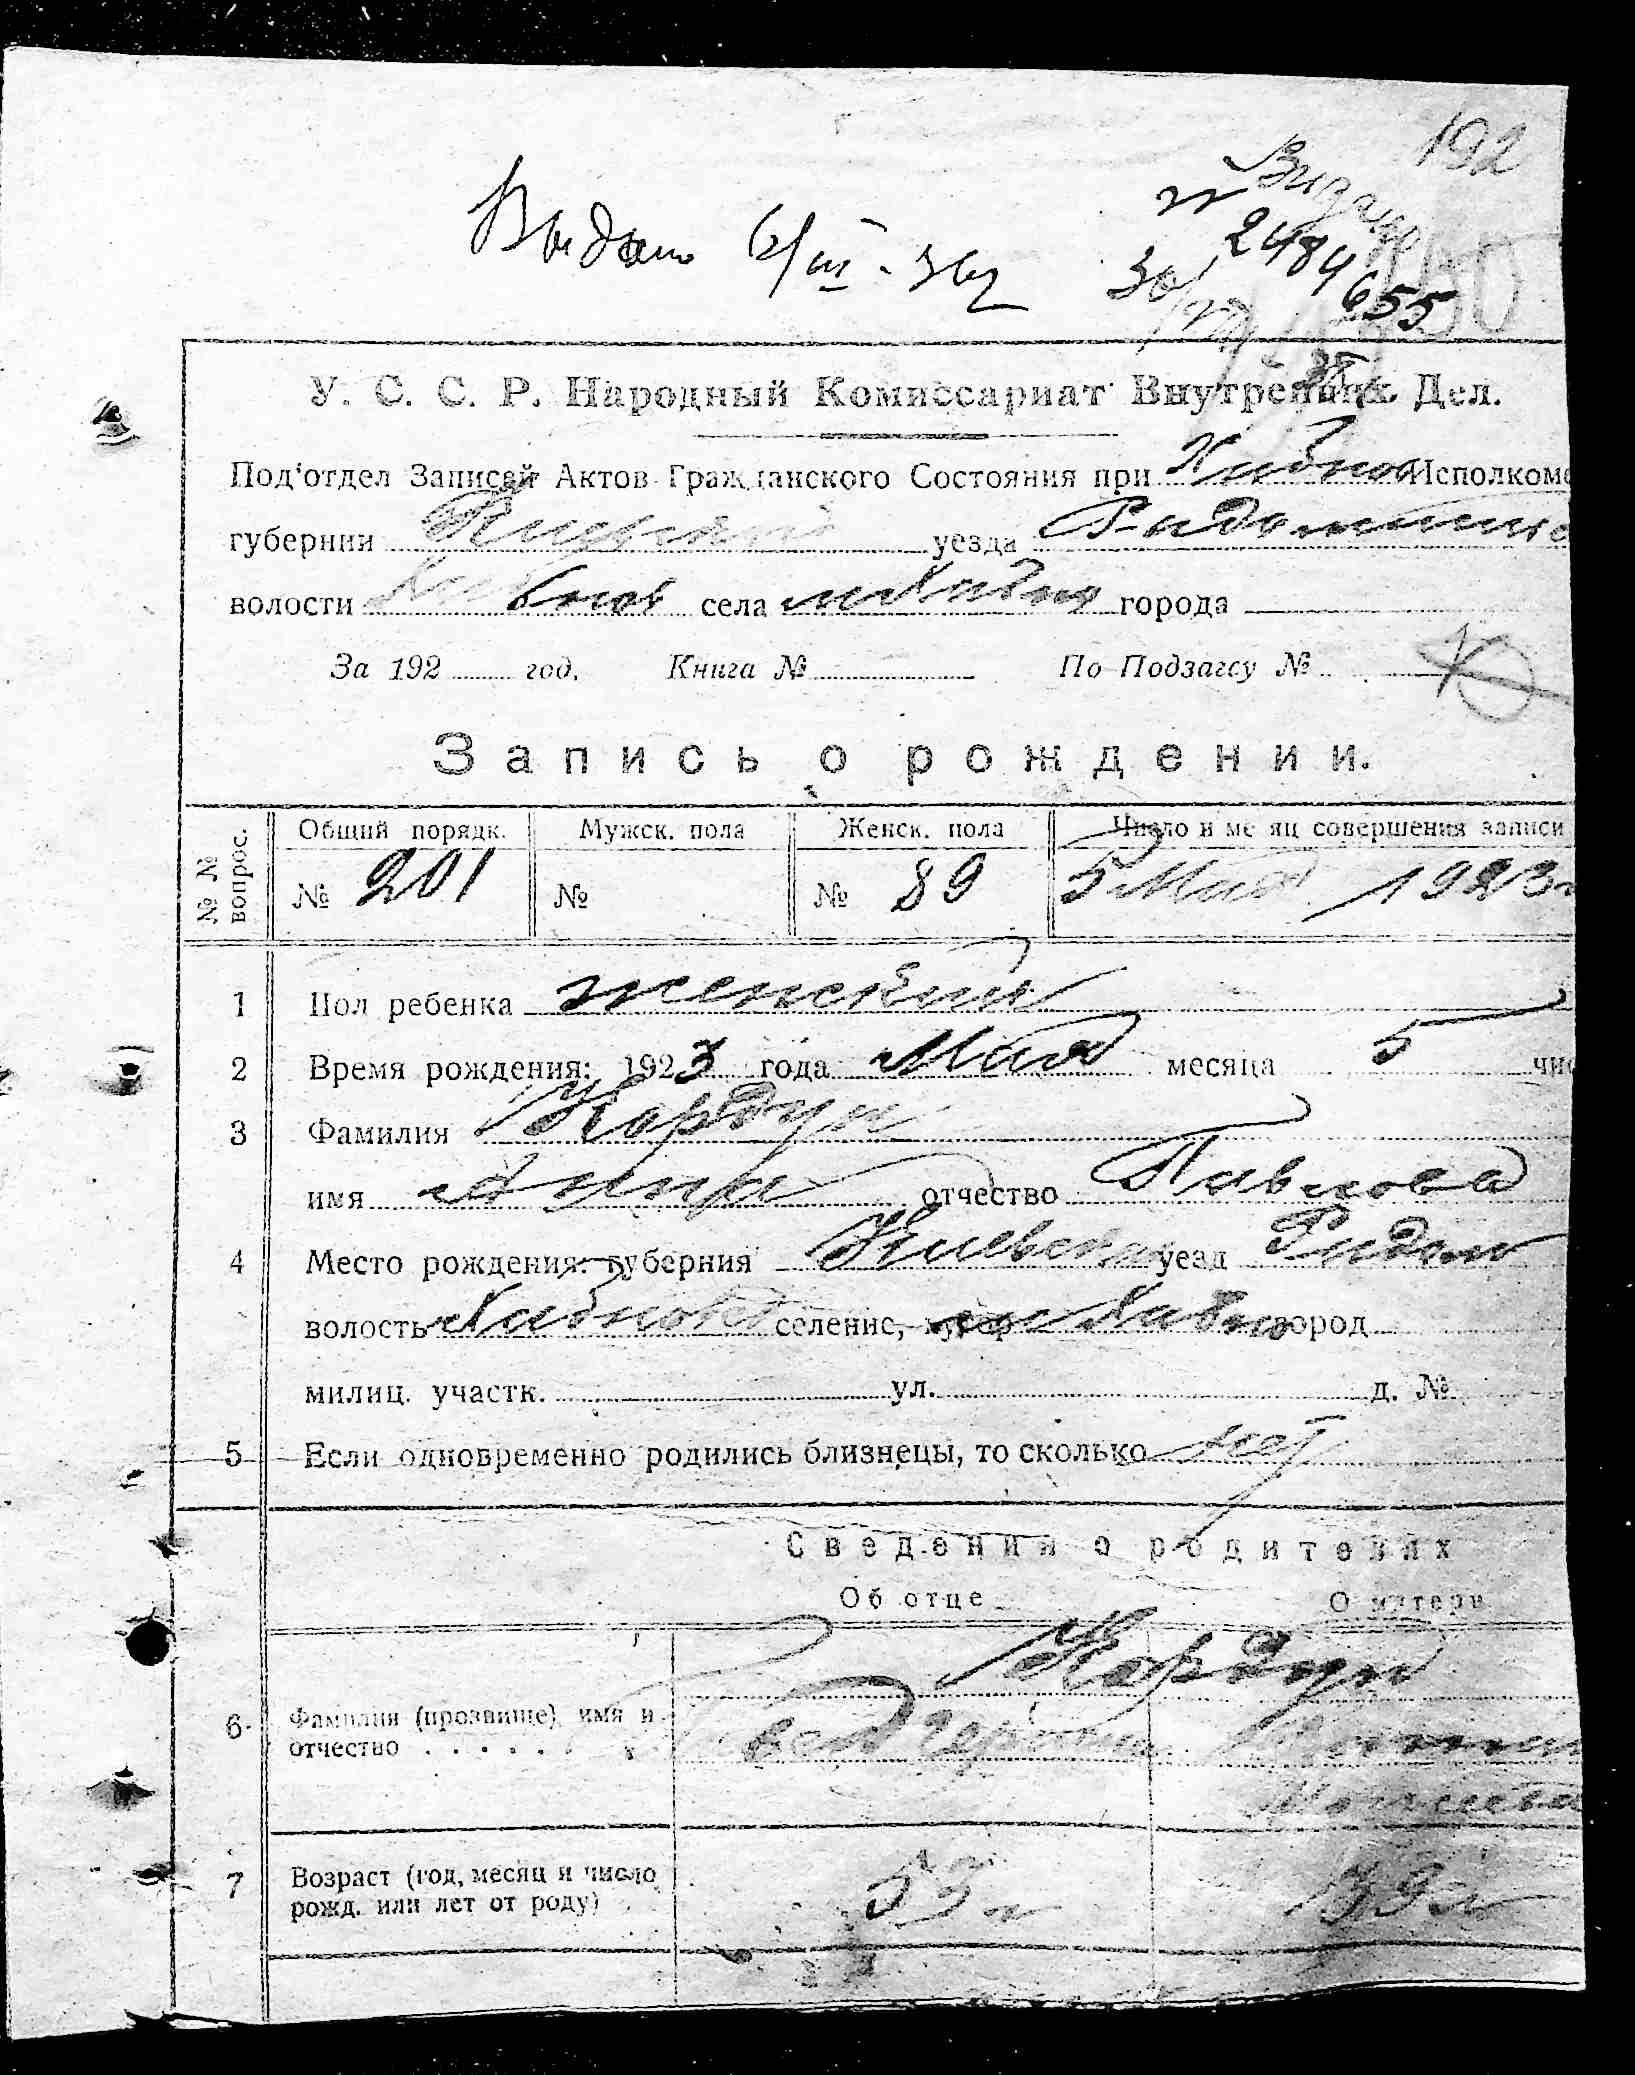 192
Выдано 6/III-36г
2484
655
У. С. С. Р. Народный Комиссариат Внутренних Дел.
Под'отдел Записей Актов Гражданского Состояния при Хабнов Исполкоме
губернии уезда Радомышль
волости Хабнов села м Хабно города
За 192 год. Книга № По Подзагсу №
Запись о рождении.
№ № вопрос. Общий порядк. Мужск. пола Женск. пола Число и месяц совершения записи
№ 201 № № 89 5 Мая 1923 г
1 Пол ребенка женский
2 Время рождения: 1923 года Мая месяца 5 чис
3 Фамилия Кордун
имя Анна отчество Павлова
4 Место рождения: губерния Киевская уезд Радом
волость Хабнов селение, хутор м Хабно город
милиц. участк. ул. д. №
5 Если одновременно родились близнецы, то сколько нет
Сведения о родителях
Об отце О матери
Кордун
6 Фамилия (прозвище) имя и
отчество
7 Возраст (год, месяц и число
рожд. или лет от роду) 53 г 39 л